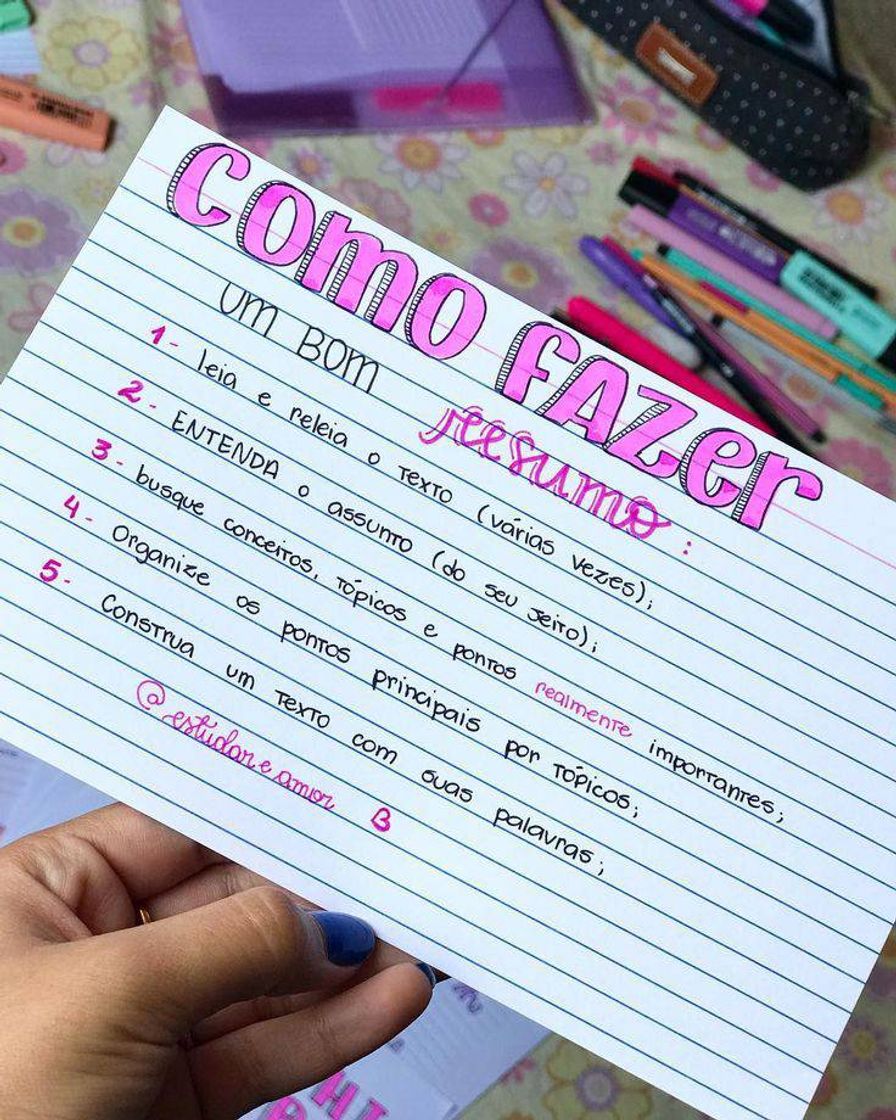 COMO FAZER
UM BOM resumo:
1- leia e releia o texto (várias vezes);
2- ENTENDA o assunto (do seu jeito);
3- busque conceitos, tópicos e pontos realmente importantes;
4- Organize os pontos principais por tópicos;
5- Construa um texto com suas palavras;
@estudar e amor B